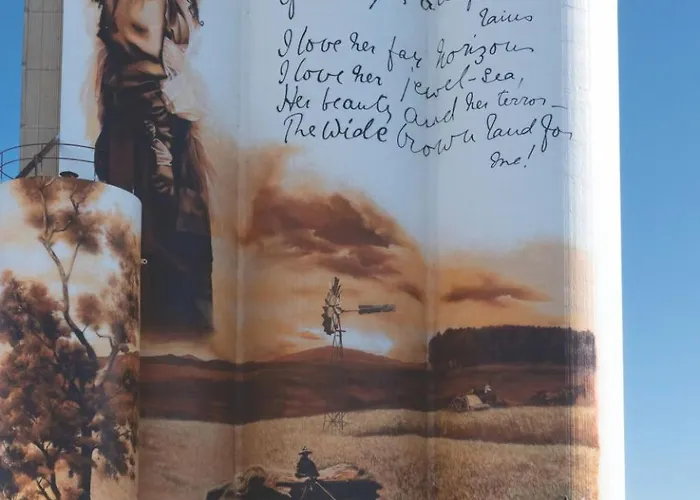 of
rains
I love her far horizons
I love her jewel-sea,
Her beauty and her terror –
The wide brown land for
me!